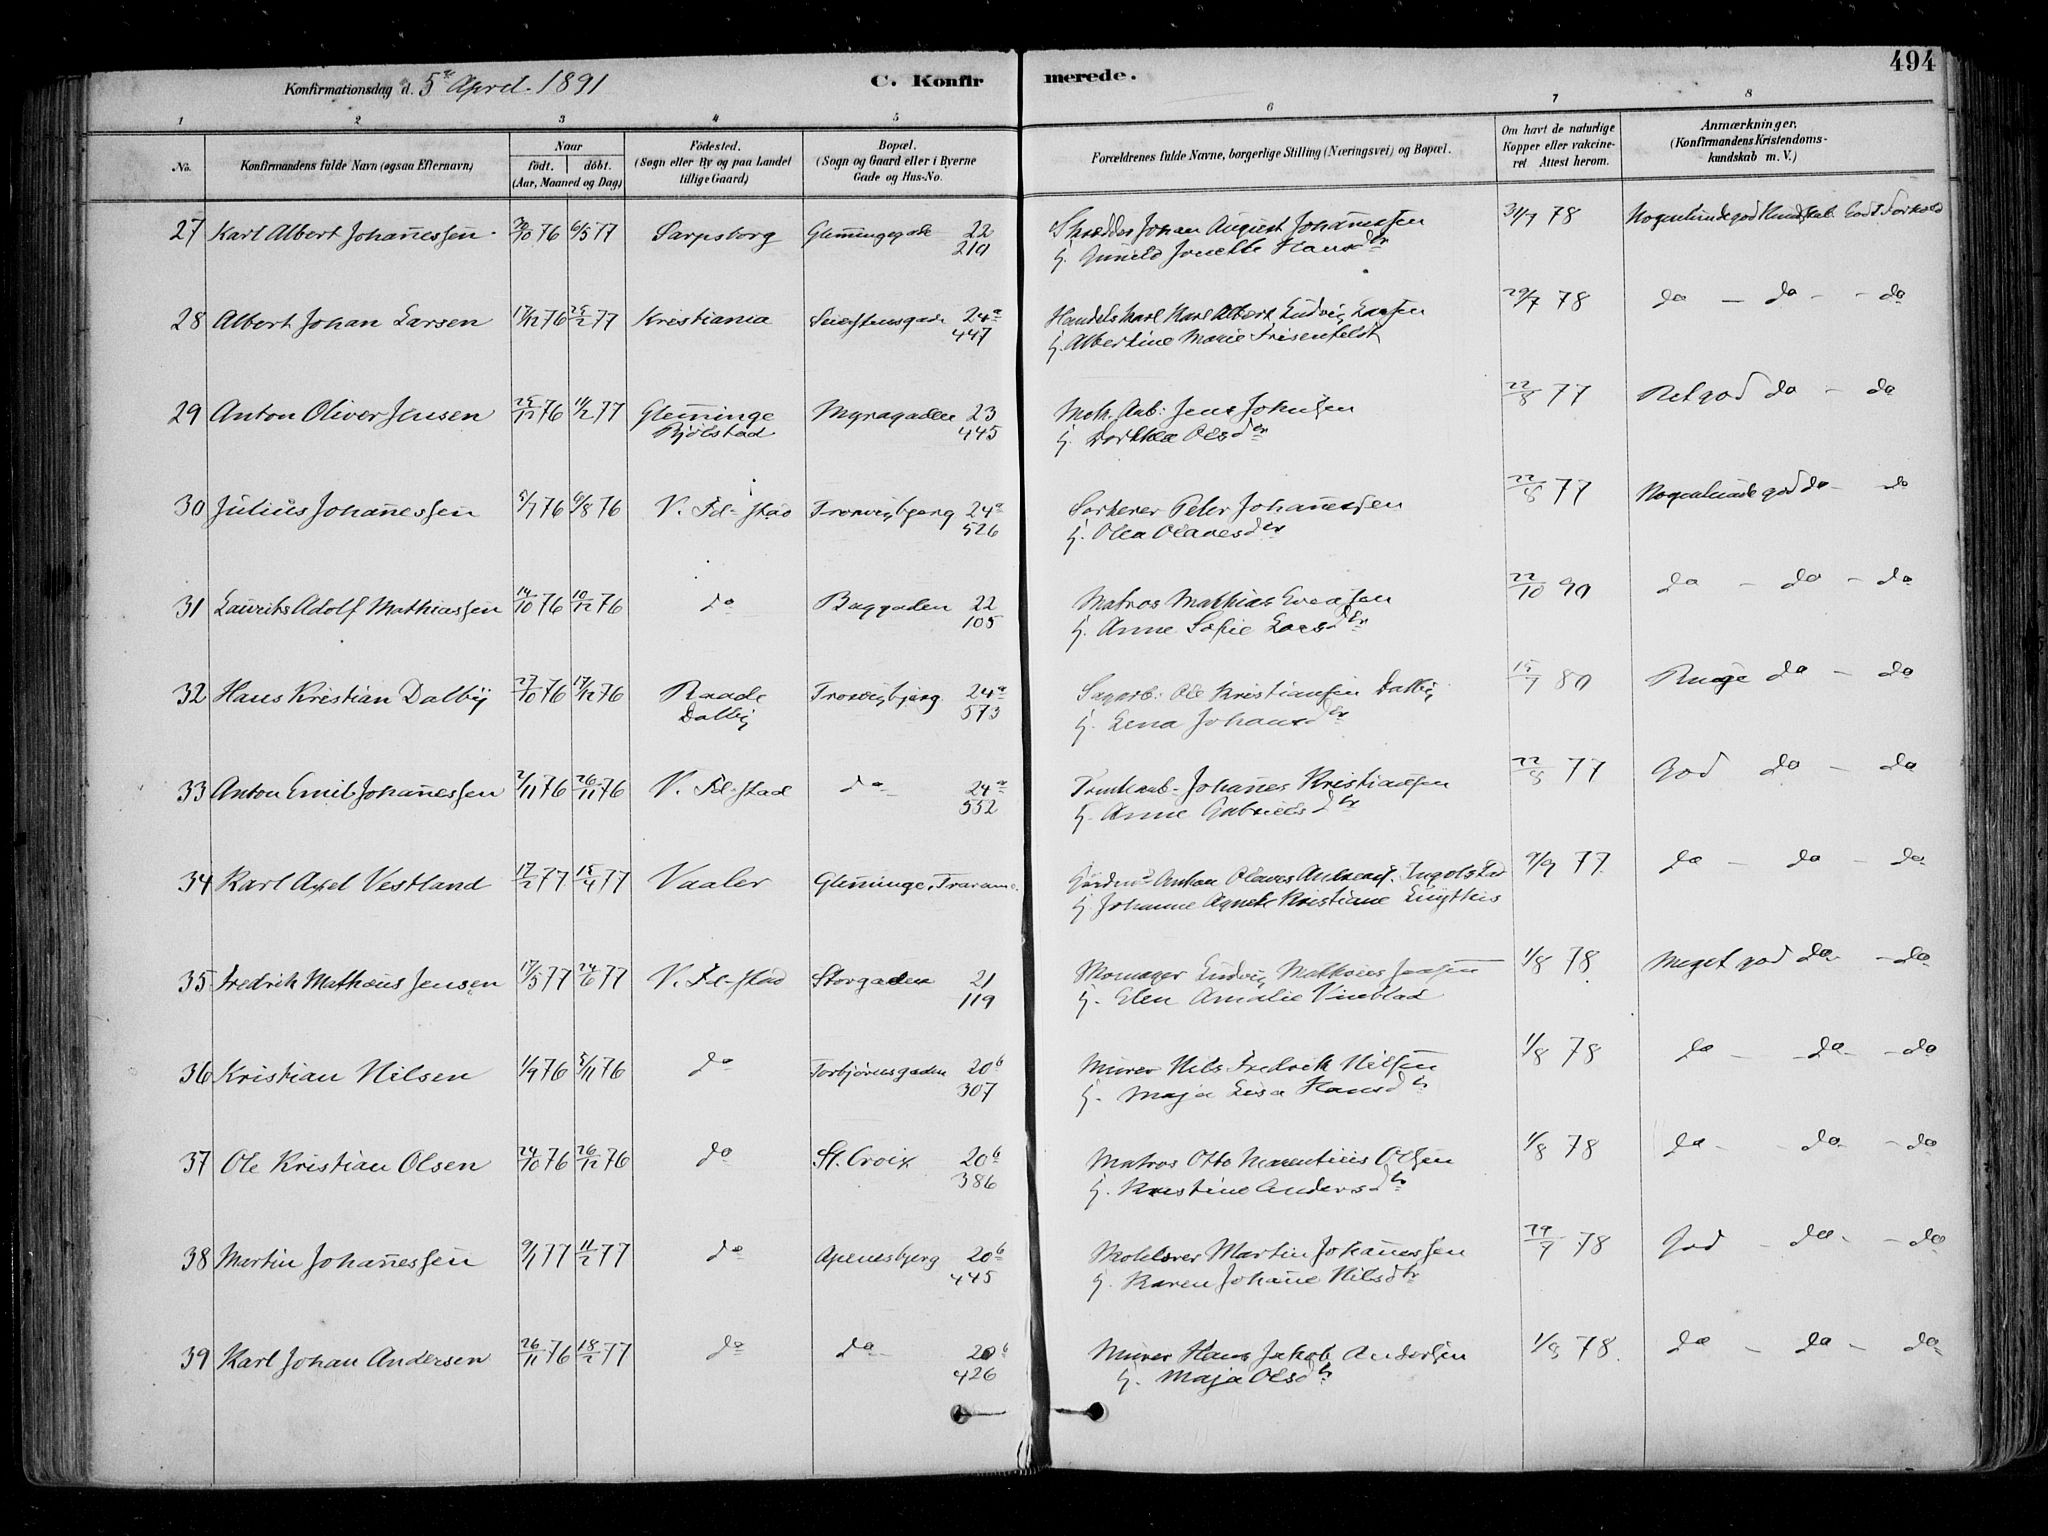 494
Konfirmationsdag d. 5te April 1891 C. Konfirmerede.
1 2 3 4 5 6 7 8
No. Konfirmandens fulde Navn (ogsaa Efternavn) Naar födt. döbt. (Aar, Maaned og Dag) Födested. (Sogn eller By og paa Landet tillige Gaard) Bopæl. (Sogn og Gaard eller i Byerne Gade og Hus-No. Forældrenes fulde Navne, borgerlige Stilling (Næringsvei) og Bopæl. Om havt de naturlige Kopper eller vakcineret Attest herom. Anmærkninger, (Konfirmandens Kristendomskundskab m. V.)
27 Karl Albert Johannessen 30/10 76 6/5 77 Sarpsborg Glemmingegade 22 Skrædder Johan August Johannessen 31/7 78 Nogenlunde god Kundskab. Godt Forhold
219 H. Gunild Jonette Hansdtr
28 Albert Johan Larsen 17/12 76 25/2 77 Kristiania 24a Handelskarl Karl Albert Ludvig Larsen 29/7 78 do - do - do
447 H. Albertine Marie Frisenfeldt
29 Anton Oliver Jensen 25/12 76 11/2 77 Glemminge Myragaden 23 Jens Johnsen 22/8 77 Ret god do - do
Bjölstad 445 H. Dorthea Olsdtr
30 Julius Johannessen 5/7 76 6/8 76 V. Fd-stad Trosvigbjerg 24a Peter Johannessen 22/8 77 Nogenlunde god do - do
526 H. Olea Olavesdtr
31 Laurits Adolf Mathiassen 14/10 76 10/12 76 do Baggaden 22 Matros Mathias Evensen 22/10 90 do - do - do
105 H. Anne Sofie Larsdtr
32 Hans Kristian Dalby 27/10 76 17/12 76 Raade Trosvigbjerg 24a Sagarb: Ole Kristiansen Dalby 15/7 80 do - do
Dalby 573 H. Lena Johansdtr
33 Anton Emil Johannessen 2/11 76 26/11 76 V. Fd-stad do 24a Johannes Kristiansen 22/8 77 God do - do
552 H. Anne Gabrielsdtr
34 Karl Axel Vestland 17/2 77 15/4 77 Vaaler Glemminge, Anton Olaves 9/9 77 do - do - do
H. Johanne Agnete Kristiane
35 Fredrik Mathæus Jensen 17/5 77 24/6 77 V. Fd-stad Storgaden 21 Skomager Ludvig Mathæus Jensen 1/8 78 Meget god do - do
119 H. Elen Amalie
36 Kristian Nilsen 1/9 76 5/11 76 do Torbjörnsgaden 20b Murer Nils Fredrik Nilsen 1/8 78 do - do - do
307 H. Maja Lisa Hansdtr
37 Ole Kristian Olsen 24/10 76 26/12 76 do St. Croix 20b Matros Otto Olsen 1/8 78 do - do - do
386 H. Kristine Andersdtr
38 Martin Johannessen 9/1 77 11/2 77 do Apenesbjerg 20b Martin Johannessen 29/7 78 God - do - do
445 H. Karen Johanne Nilsdtr
39 Karl Johan Andersen 26/11 76 18/2 77 do do 20b Murer Hans Jakob Andersen 1/8 78 do - do - do
426 H. Maja Olsdtr